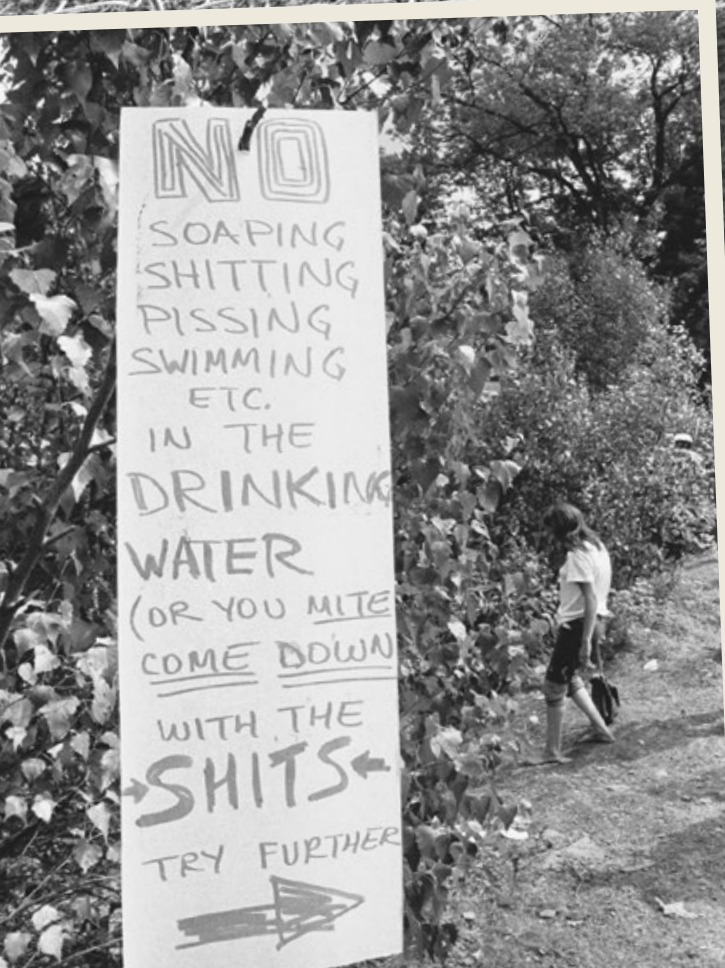 NO
SOAPING
SHITTING
PISSING
SWIMMING
ETC.
IN THE
DRINKING
WATER
(OR YOU MITE
COME DOWN
WITH THE
SHITS
TRY FURTHER